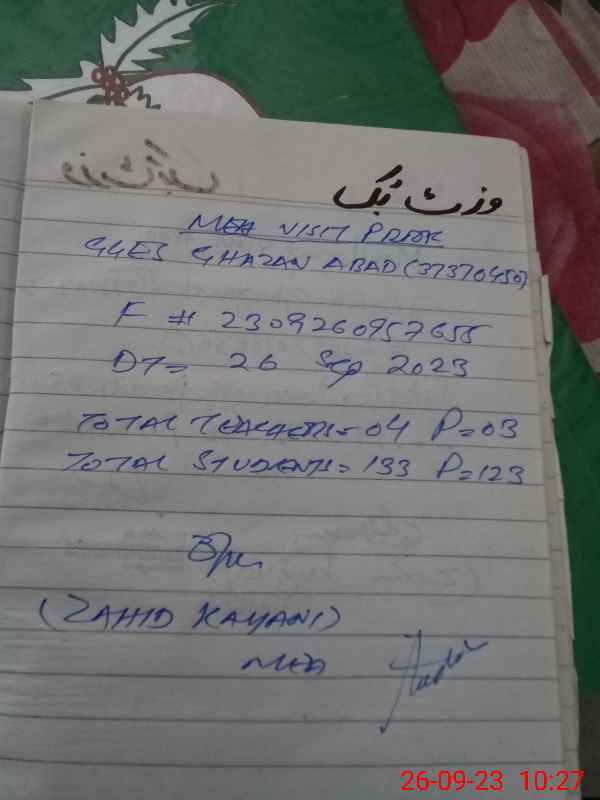 وزٹ بک
MEA VISIT PROOF
GGES GHAZAN ABAD (37370450)
F # 2309260957655
DT= 26 Sep 2023
TOTAL TEACHERS= 04 P=03
TOTAL STUDENTS= 133 P=123
(ZAHID KAYANI)
MEA
26-09-23 10:27